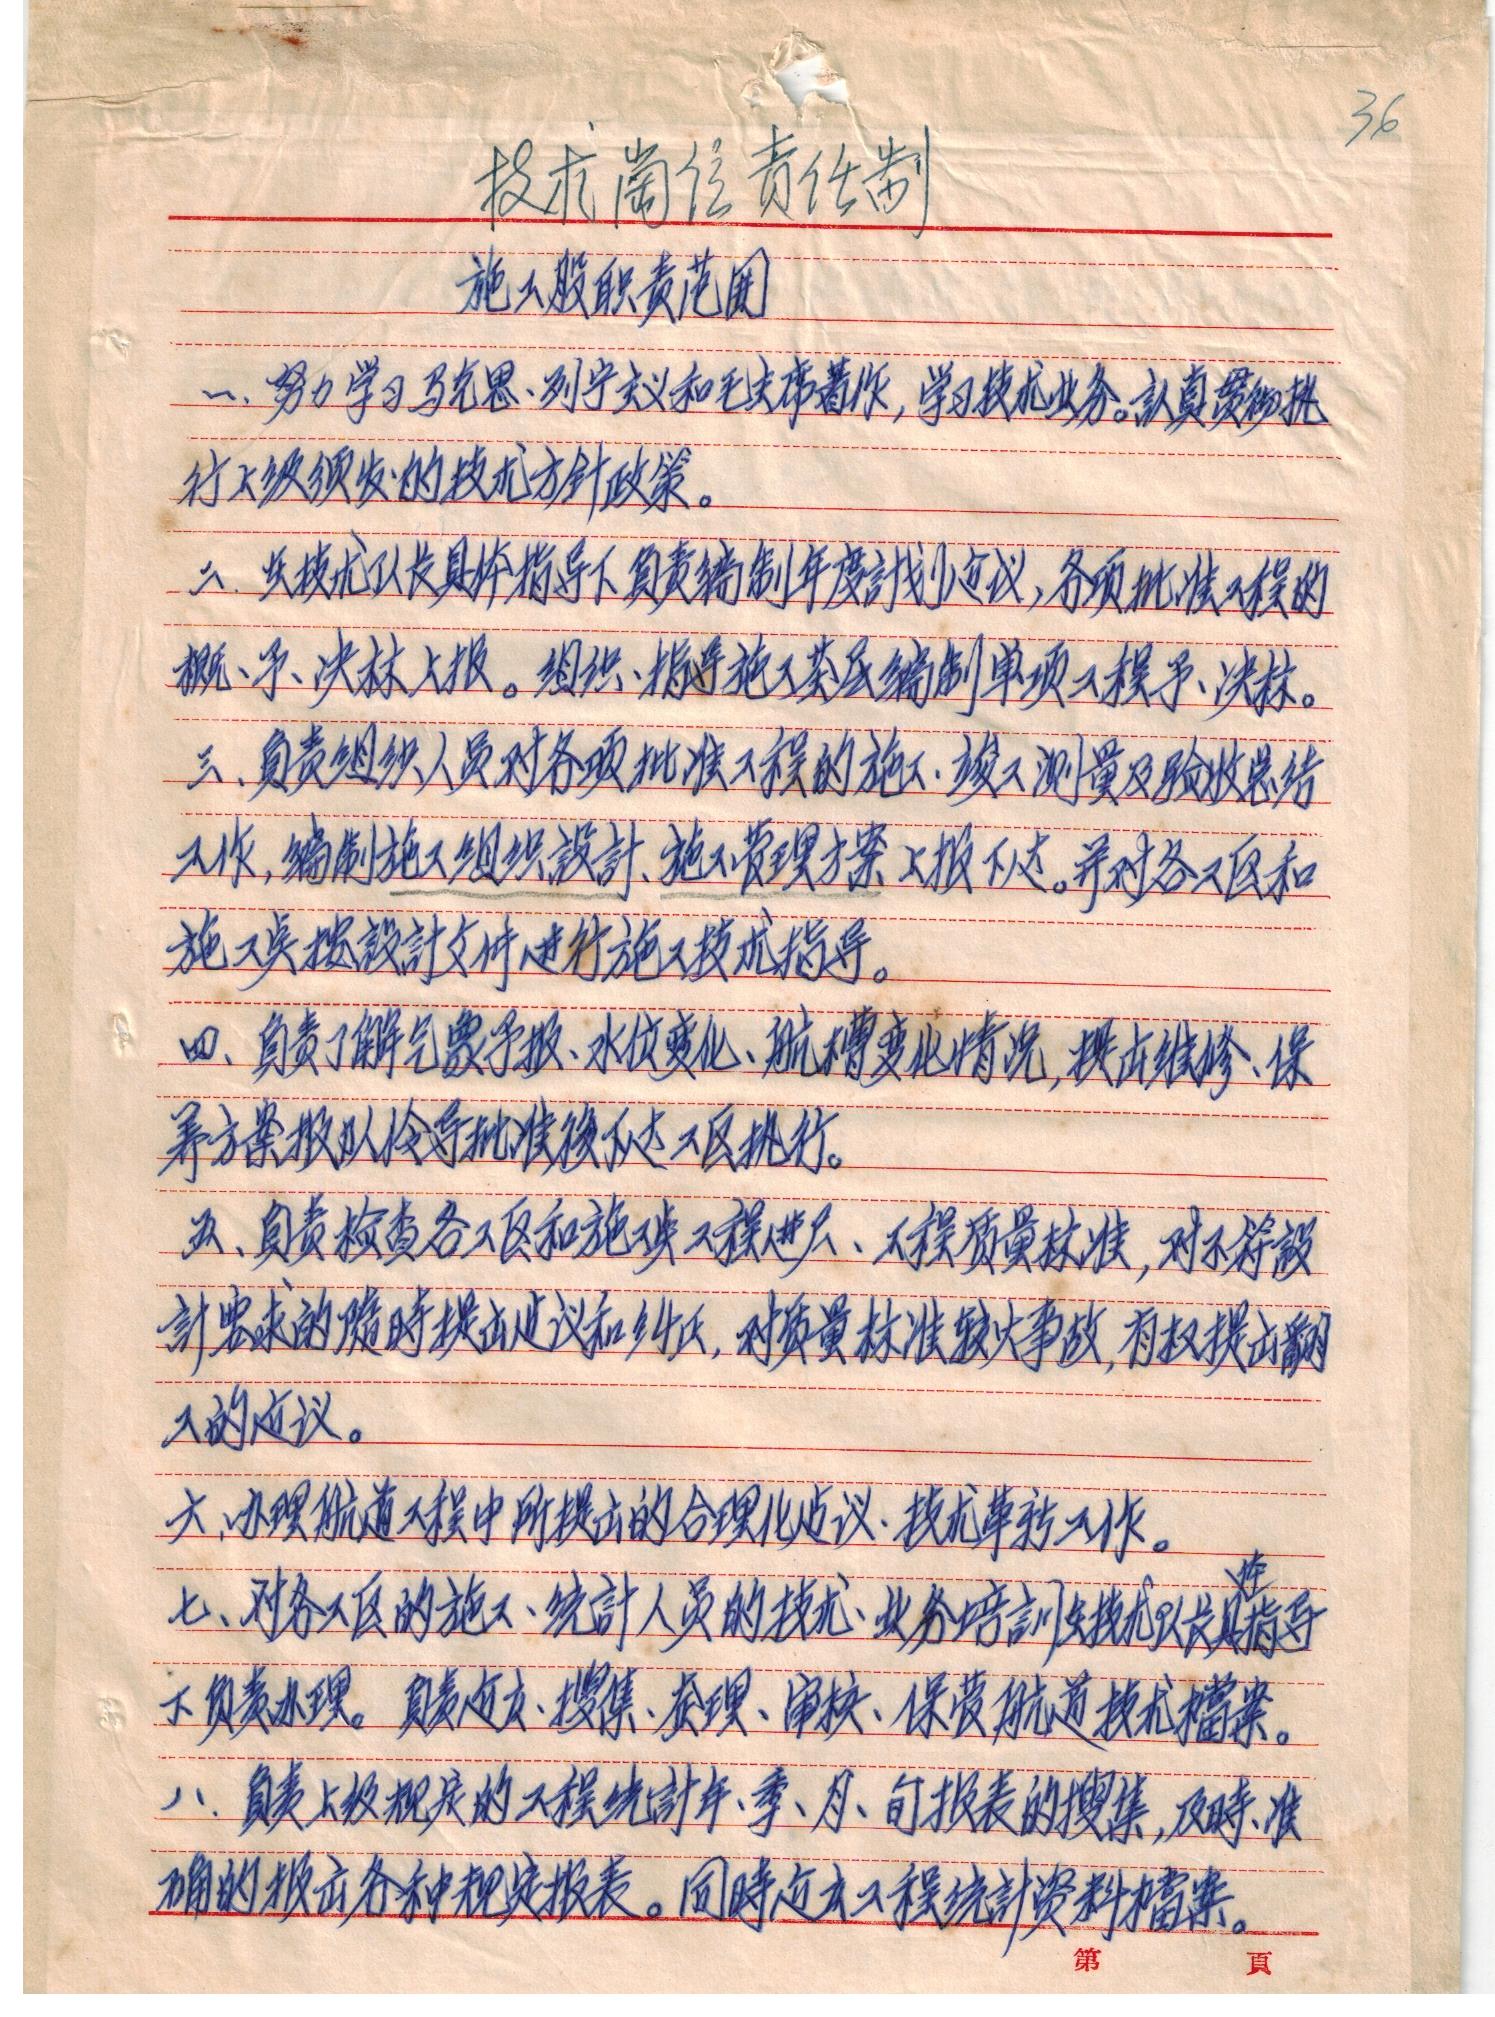 36
技术岗位责任制
施工股职责范围
一、努力学习马克思、列宁主义和毛主席著作，学习技术业务。認真贯彻执
行上级颁发的技术方针政策。
二、在技术队长具体指导下负责编制年度計划建议，各项批准工程的
概、予、决祘上报。组织、指导施工基层编制单项工程予、决祘。
三、负责组织人员对各项批准工程的施工、竣工测量及验收总结
工作，编制施工组织設計、施工管理方案上报下达。并对各工区和
施工点按設計文件进行施工技术指导。
四、负责了解气象予报、水位变化、航槽变化情况，提出维修、保
养方案报队领导批准後下达工区执行。
五、负责检查各工区和施工点工程进度、工程质量标准，对不符設
計要求的随時提出建议和纠正，对质量标准较大事故，有权提出翻
工的建议。
六、办理航道工程中所提出的合理化建议、技术革新工作。
七、对各工区的施工、統計人员的技术、业务培訓在技术队长具体指导
下负责办理。负责建立、搜集、整理、审核、保管航道技术檔案。
八、负责上级规定的工程統計年、季、月、旬报表的搜集，及時、准
确的报出各种规定报表。同時建立工程統計资料檔案。
第 頁